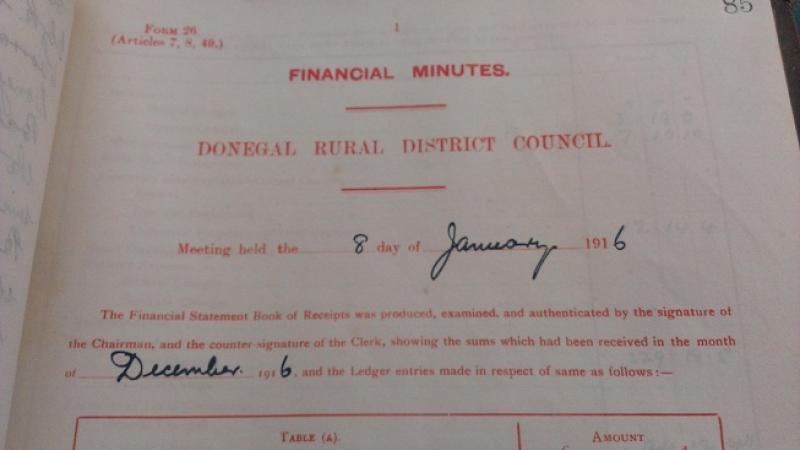 85
FORM 26
(Articles 7, 8, 49.)
1
FINANCIAL MINUTES.
DONEGAL RURAL DISTRICT COUNCIL.
Meeting held the 8 day of January 1916
The Financial Statement Book of Receipts was produced, examined, and authenticated by the signature of
the Chairman, and the counter-signature of the Clerk, showing the sums which had been received in the month
of December 1916, and the Ledger entries made in respect of same as follows:—
TABLE (A).
AMOUNT